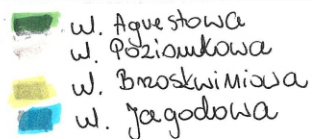 ul. Agrestowa
ul. Poziomkowa
ul. Brzoskwiniowa
ul. Jagodowa